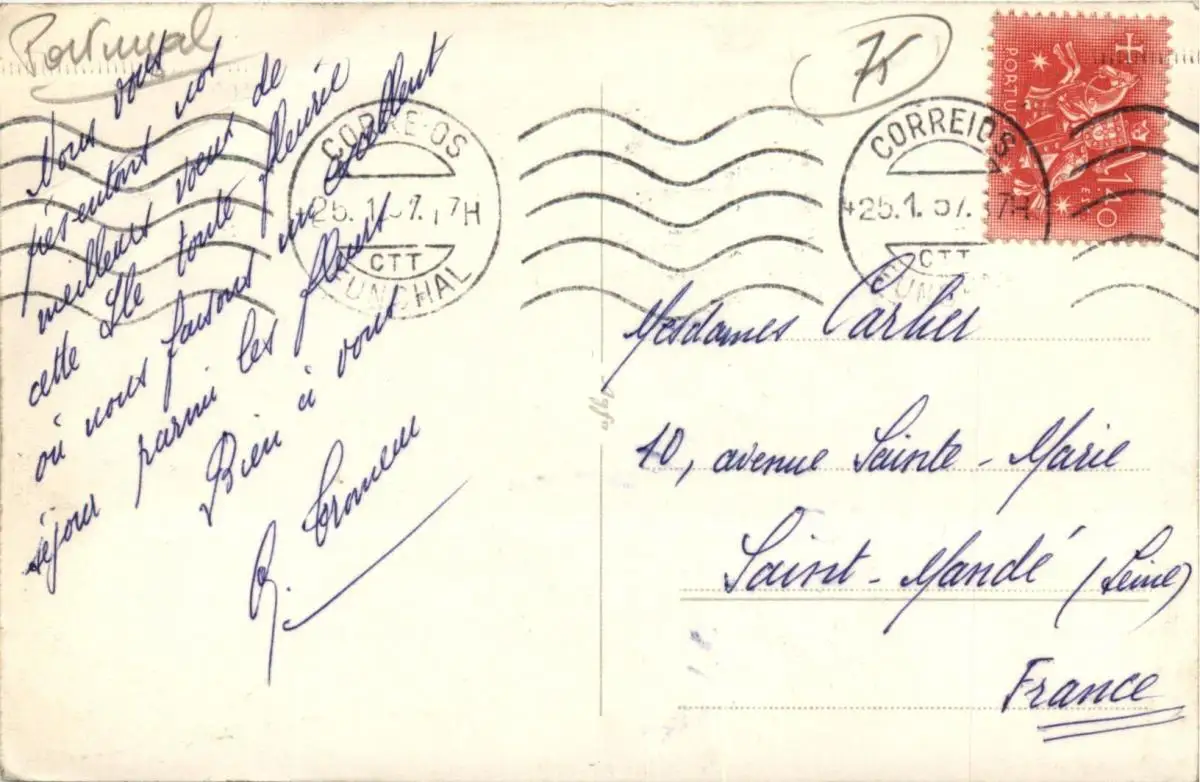 Portugal
Nous vous
présentons nos
meilleurs voeux de
cette Ile toute fleurie
où nous faisons un excellent
séjour parmi les fleurs
Bien à vous
75
CORREIOS
25.1.57. 17H
CTT
FUNCHAL
CORREIOS
25.1.57. 17H
CTT
FUNCHAL
PORTUGAL
1$40
Mesdames Carlier
10, avenue Sainte-Marie
Saint-Mandé (Seine)
France